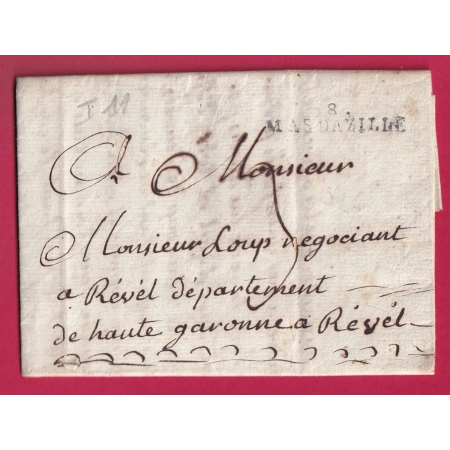 I 11
8
MASDAZILLE
A Monsieur
Monsieur Loup negociant
a Révél département
de haute garonne a Révél